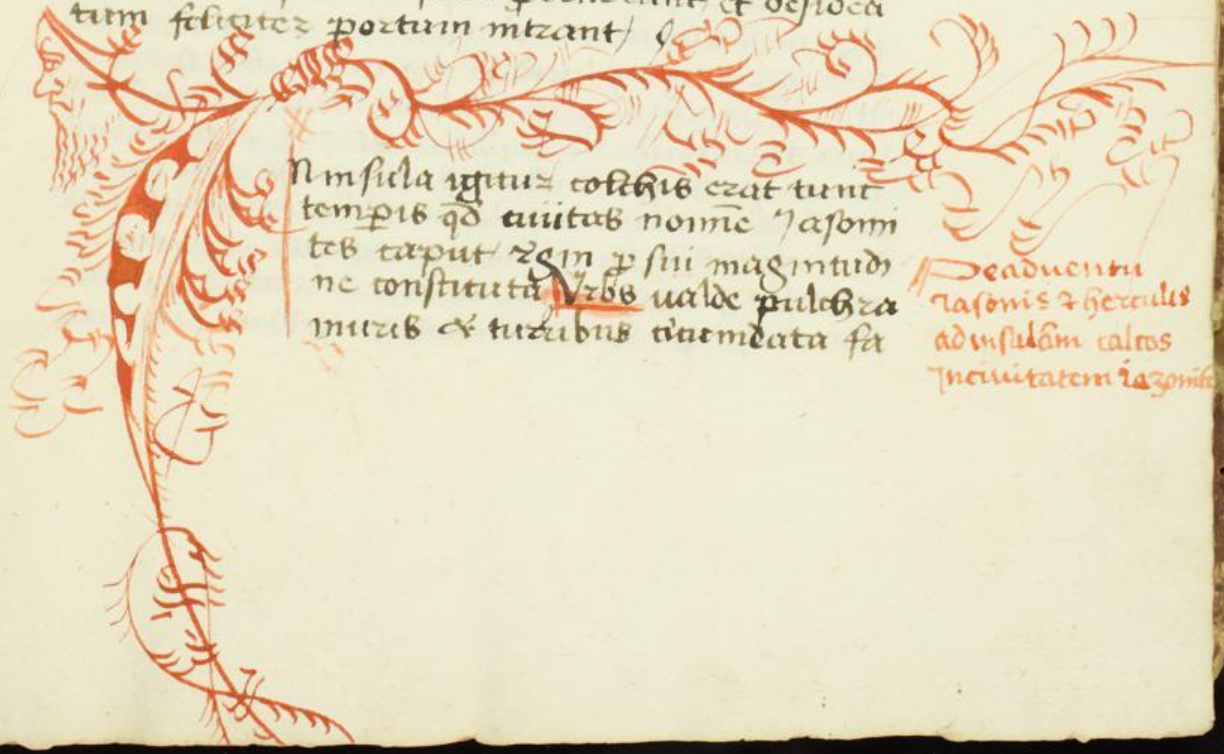 et desidea
tum feliciter portum intrant
N insula igitur colchis erat tunc
temporis qd ciuitas nomine Jasoni
tes caput regin p sui magnitudi
ne constituta Vrbs ualde pulchra
muris & turribus circumdata fa
De aduentu
iasonis & herculis
ad insulam calcos
In ciuitatem iazonite